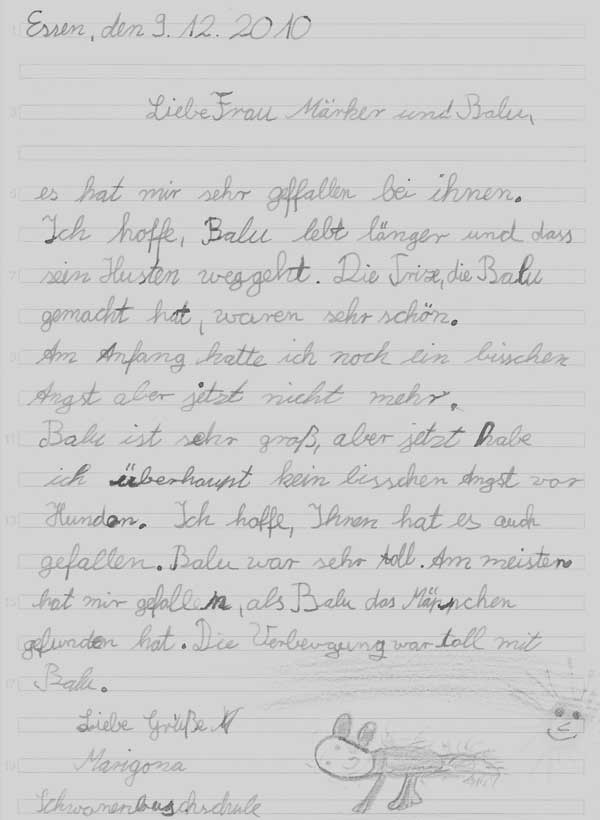 Essen, den 9. 12. 2010
Liebe Frau Märker und Balu,
es hat mir sehr geffallen bei ihnen.
Ich hoffe, Balu lebt länger und dass
sein Husten weggeht. Die Trixe, die Balu
gemacht hat, waren sehr schön.
Am Anfang hatte ich noch ein bisschen
Angst aber jetzt nicht mehr.
Balu ist sehr groß, aber jetzt habe
ich überhaupt kein bisschen Angst vor
Hunden. Ich hoffe, Ihnen hat es auch
gefallen. Balu war sehr toll. Am meisten
hat mir gefallen, als Balu das Mäppchen
gefunden hat. Die Verbeugung war toll mit
Balu.
Liebe Grüße
Marigona
Schwanenbuschschule